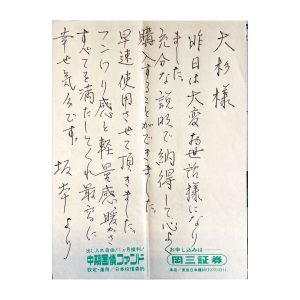 大杉様
昨日は大変お世話様になり
ました。
充分な説明で納得して心よく
購入することができました。
早速使用させて頂きました。
フンワリ感と軽量感暖かさ
すべてを満たしてくれ最高に
幸せ気分です。
坂本より
お申し込みは
岡三証券
出し入れ自由/1ヵ月複利/
中期国債ファンド
設定・運用/日本投信委託